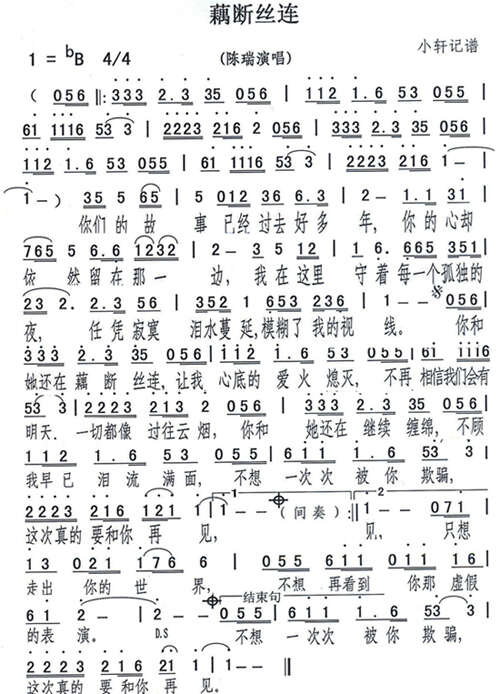 藕断丝连
小轩记谱
1 = ᵇB 4/4 (陈瑞演唱)
( 056 ‖: 333 2.3 35 056 | 112 1.6 53 055 |
61 1116 53 3 | 2223 216 2 026 | 333 2.3 35 056 |
112 1.6 53 055 | 61 1116 53 3 | 2223 216 1 - |
1 - ) 35 5 65 | 5 012 36 6.3 | 2 - 1.1 31 |
你们的故 事 已经过去好多 年, 你的心却
765 5 6.6 1232 | 2 - 3 5 12 | 1 6. 665 351 |
依 然留在那一 边, 我在这里 守着每一个孤独的
23 2. 2.3 56 | 352 1 653 236 | 1 - - 056 |
夜, 任凭寂寞 泪水蔓延,模糊了我的视 线。 你和
333 2.3 35 056 | 112 1.6 53 055 | 61 1116
她还在藕 断 丝连,让我 心底的 爱火 熄灭, 不再 相信我们会有
53 3 | 2223 213 2 056 | 333 2.3 35 056 |
明天. 一切都像 过往云 烟, 你和 她还在 继续 缠绵, 不顾
112 1.6 53 055 | 611 011 1.6 53 3 |
我早已 泪流 满面, 不想 一次次 被你 欺骗,
2223 216 212 1 | 1 - - ( 间奏 ) :‖ 1 - - 071 |
这次真的 要和你 再 见, 见, 只想
13 021 176 6 | 055 611 011 16 |
走出 你的 世 界, 不想 再看到 你那 虚假
61 2 - - | 2 - - 结束句 055 | 611 1.6 53 3 |
的表 演。 D.S 不想 一次次 被你 欺骗,
2223 216 21 1 | 1 - - ‖
这次真的 要和你 再 见。